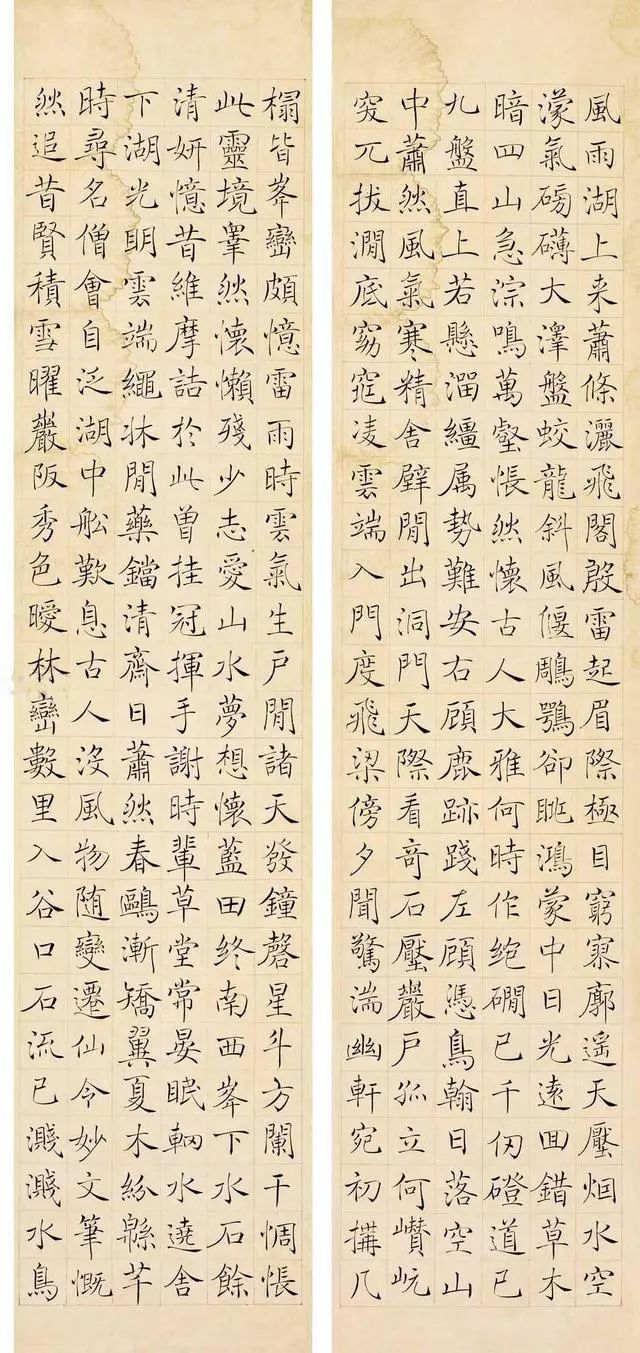 風雨湖上来蕭條灑飛閣殷雷起眉際極目窮寥廓遥天壓烟水空
濛氣磅礴大澤盤蛟龍斜風偃鵰鶚卻眺鴻蒙中日光遠回錯草木
暗四山急淙鳴萬壑悵然懷古人大雅何時作绝磵已千仞磴道已
九盤直上若懸溜繮属勢難安右顧鹿跡踐左頋憑鳥翰日落空山
中蕭然風氣寒精舍壁閒出洞門天際看奇石壓巖戶孤立何巑岏
突兀拔澗底窈窕凌雲端入門度飛梁傍夕聞驚湍幽軒宛初搆几
榻皆峯巒頗憶雷雨時雲氣生戶閒諸天發鐘磬星斗方闌干惆悵
此靈境睪然懷懶殘少志愛山水夢想懷藍田终南西峯下水石餘
清妍憶昔維摩詰於此曾挂冠揮手謝時輩草堂常晏眠輞水遶舍
下湖光明雲端繩牀閒藥鐺清齋日蕭然春鷗漸矯翼夏木紛緜芊
時尋名僧會自泛湖中舩歎息古人没風物随變遷仙令妙文筆慨
然追昔賢積雪曜巖阪秀色曖林巒數里入谷口石流已濺濺水鳥